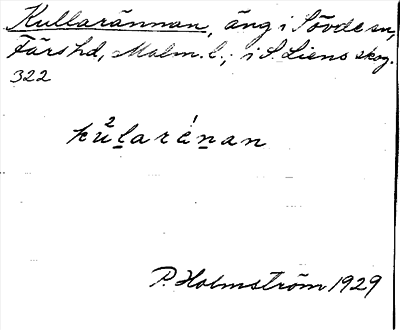 Kullarännan, äng i Sövde sn,
Färs hd, Malm. l.; i S. Liens skog.
322
kŭ²l̲aré́n̲an
P. Holmström 1929